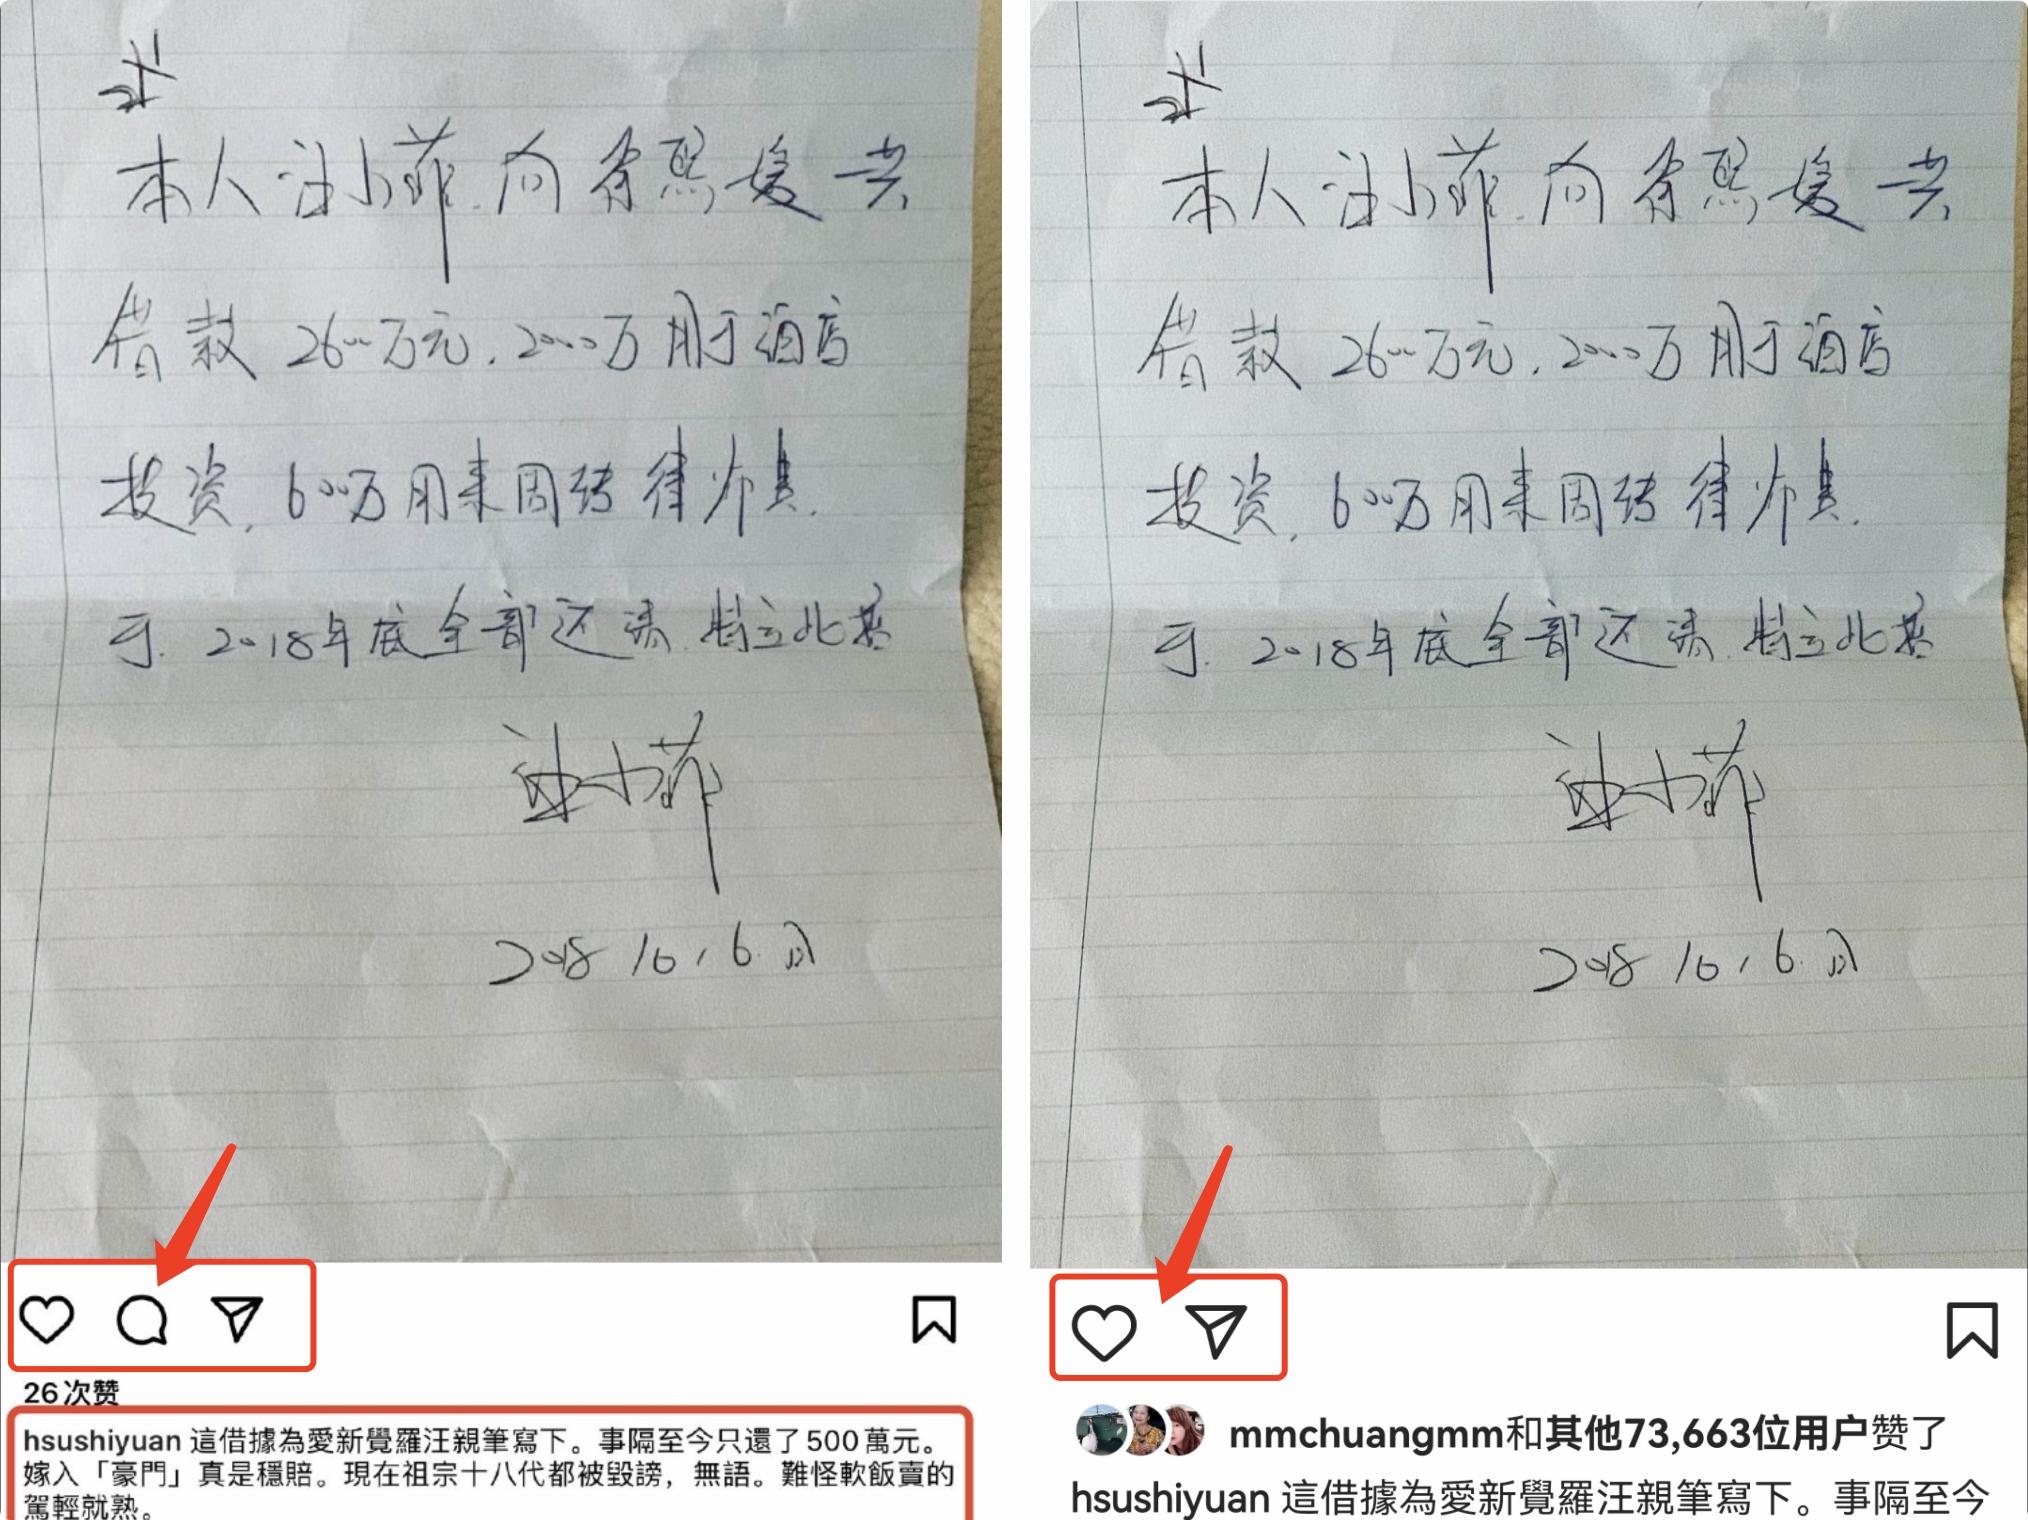 本人汪小菲.向徐熙媛共
借款2600万元.2000万用于酒店
投资.600万用来周转律师费.
于.2018年底全部还清.特立此据
汪小菲
2018 10,6.
26次赞
hsushiyuan 這借據為愛新覺羅汪親筆寫下。事隔至今只還了500萬元。
嫁入「豪門」真是穩賠。現在祖宗十八代都被毀謗，無語。難怪軟飯賣的
駕輕就熟。
本人汪小菲.向徐熙媛共
借款2600万元.2000万用于酒店
投资.600万用来周转律师费.
于.2018年底全部还清.特立此据
汪小菲
2018 10,6.
mmchuangmm和其他73,663位用户赞了
hsushiyuan 這借據為愛新覺羅汪親筆寫下。事隔至今